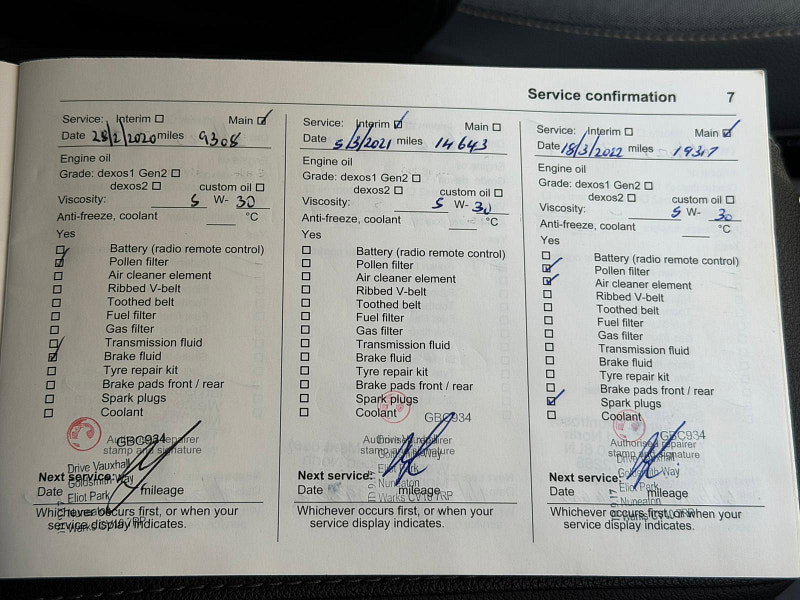 Service confirmation 7
Service: Interim ☐ Main ☑
Date 28/2/2020 miles 9308
Engine oil
Grade: dexos1 Gen2 ☐
dexos2 ☐ custom oil ☐
Viscosity: 5 W- 30
Anti-freeze, coolant °C
Yes
☐ Battery (radio remote control)
☑ Pollen filter
☐ Air cleaner element
☐ Ribbed V-belt
☐ Toothed belt
☐ Fuel filter
☐ Gas filter
☐ Transmission fluid
☑ Brake fluid
☐ Tyre repair kit
☐ Brake pads front / rear
☐ Spark plugs
☐ Coolant
GBC934
Authorised repairer
stamp and signature
Drive Vauxhall
Goldsmith Way
Eliot Park
Nuneaton
Warks CV10 7RP
Next service:
Date mileage
Whichever occurs first, or when your
service display indicates.
Service: Interim ☑ Main ☐
Date 5/3/2021 miles 14643
Engine oil
Grade: dexos1 Gen2 ☐
dexos2 ☐ custom oil ☐
Viscosity: 5 W- 30
Anti-freeze, coolant °C
Yes
☐ Battery (radio remote control)
☐ Pollen filter
☐ Air cleaner element
☐ Ribbed V-belt
☐ Toothed belt
☐ Fuel filter
☐ Gas filter
☐ Transmission fluid
☐ Brake fluid
☐ Tyre repair kit
☐ Brake pads front / rear
☐ Spark plugs
☐ Coolant
GBC934
Authorised repairer
stamp and signature
Eliot Park
Nuneaton
7RP
Next service:
Date mileage
Whichever occurs first, or when your
service display indicates.
Service: Interim ☐ Main ☑
Date 18/3/2022 miles 19317
Engine oil
Grade: dexos1 Gen2 ☐
dexos2 ☐ custom oil ☐
Viscosity: 5 W- 30
Anti-freeze, coolant °C
Yes
☐ Battery (radio remote control)
☑ Pollen filter
☑ Air cleaner element
☐ Ribbed V-belt
☐ Toothed belt
☐ Fuel filter
☐ Gas filter
☐ Transmission fluid
☐ Brake fluid
☐ Tyre repair kit
☐ Brake pads front / rear
☑ Spark plugs
☐ Coolant
GBC934
Authorised repairer
stamp and signature
Drive Vauxhall
Goldsmith Way
Eliot Park
Nuneaton
Warks CV10 7RP
Next service:
Date mileage
Whichever occurs first, or when your
service display indicates.